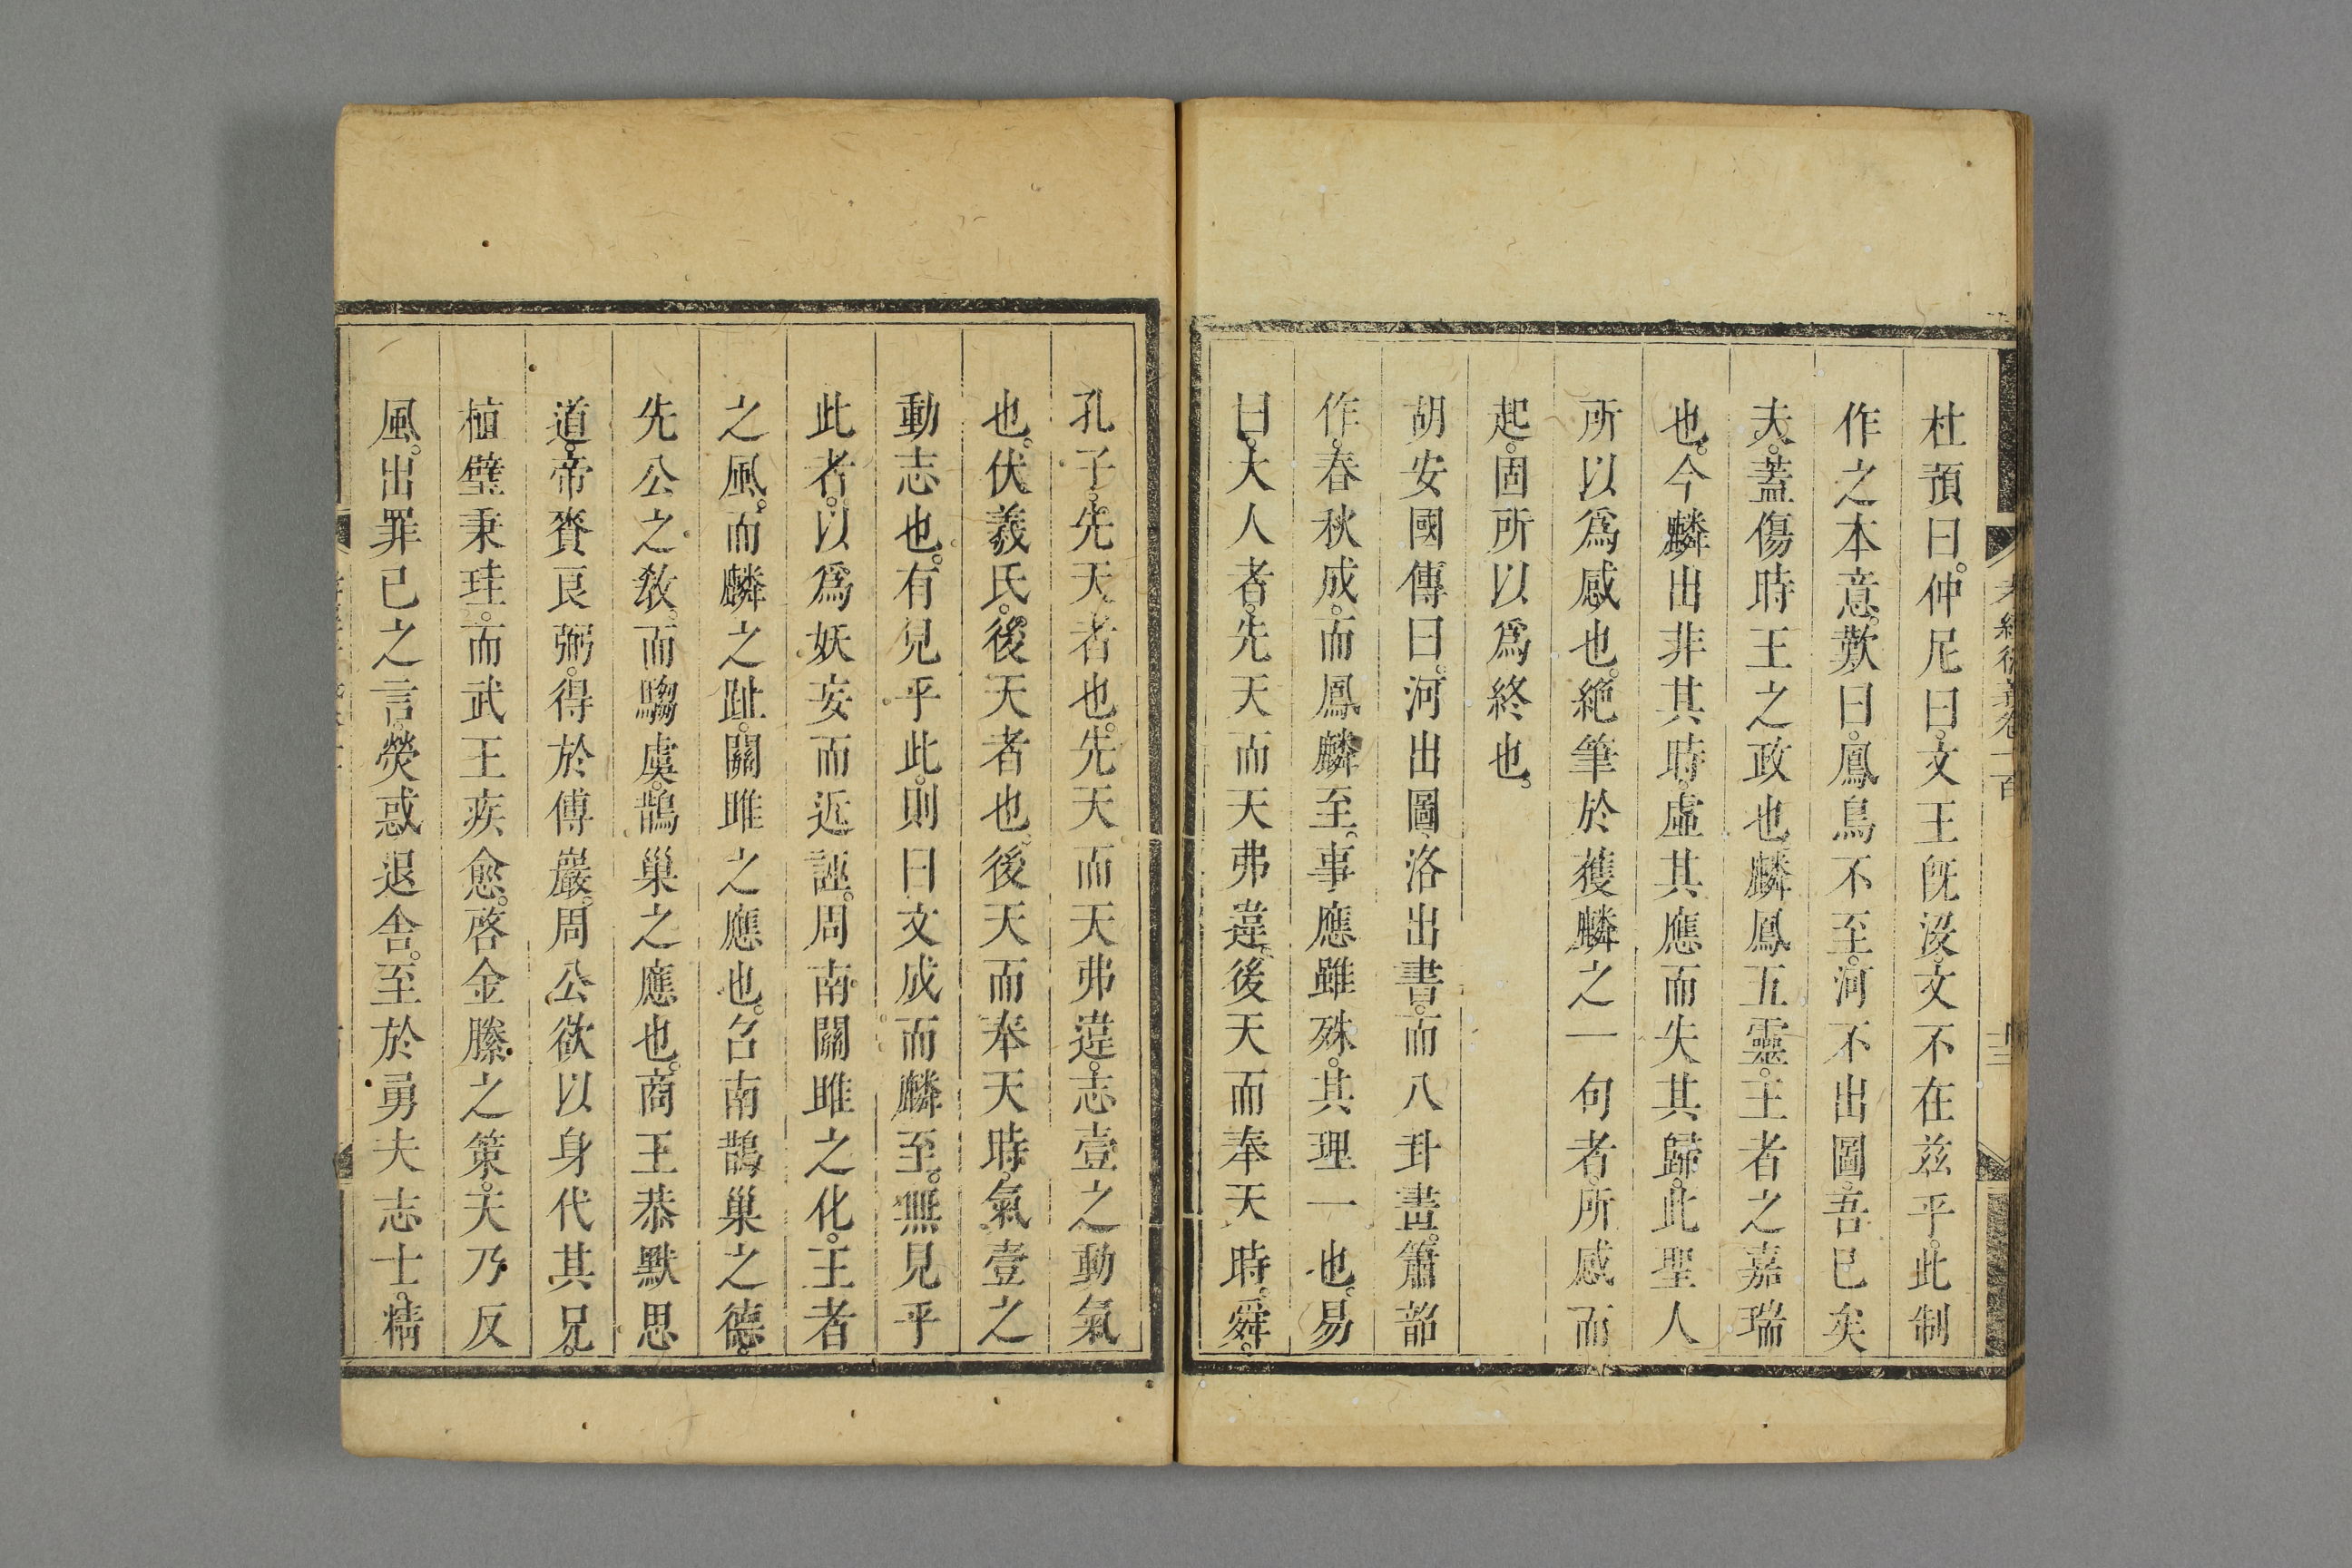 杜預曰。仲尼曰。文王旣沒。文不在兹乎。此制
作之本意。歎曰。鳳鳥不至。河不出圖。吾已矣
夫。蓋傷時王之政也。麟鳳五靈。王者之嘉瑞
也。今麟出非其時。虛其應而失其歸。此聖人
所以爲感也。絶筆於獲麟之一句者。所感而
起。固所以爲終也。
胡安國傳曰。河出圖洛出書。而八卦畫。簫韶
作。春秋成。而鳳麟至。事應雖殊。其理一也。易
曰。大人者。先天而天弗違。後天而奉天時。舜。
孔子。先天者也。先天而天弗違。志壹之動氣
也。伏羲氏。後天者也。後天而奉天時。氣壹之
動志也。有見乎此。則曰文成而麟至。無見乎
此者。以爲妖妄而近誣。周南關雎之化。王者
之風。而麟之趾。關雎之應也。召南鵲巢之德。
先公之敎。而騶虞。鵲巢之應也。商王恭默思
道。帝賚良弼。得於傅巖。周公欲以身代其兄。
植璧秉珪。而武王疾愈。啓金縢之策。天乃反
風。出罪已之言。熒惑退舍。至於勇夫志士。精